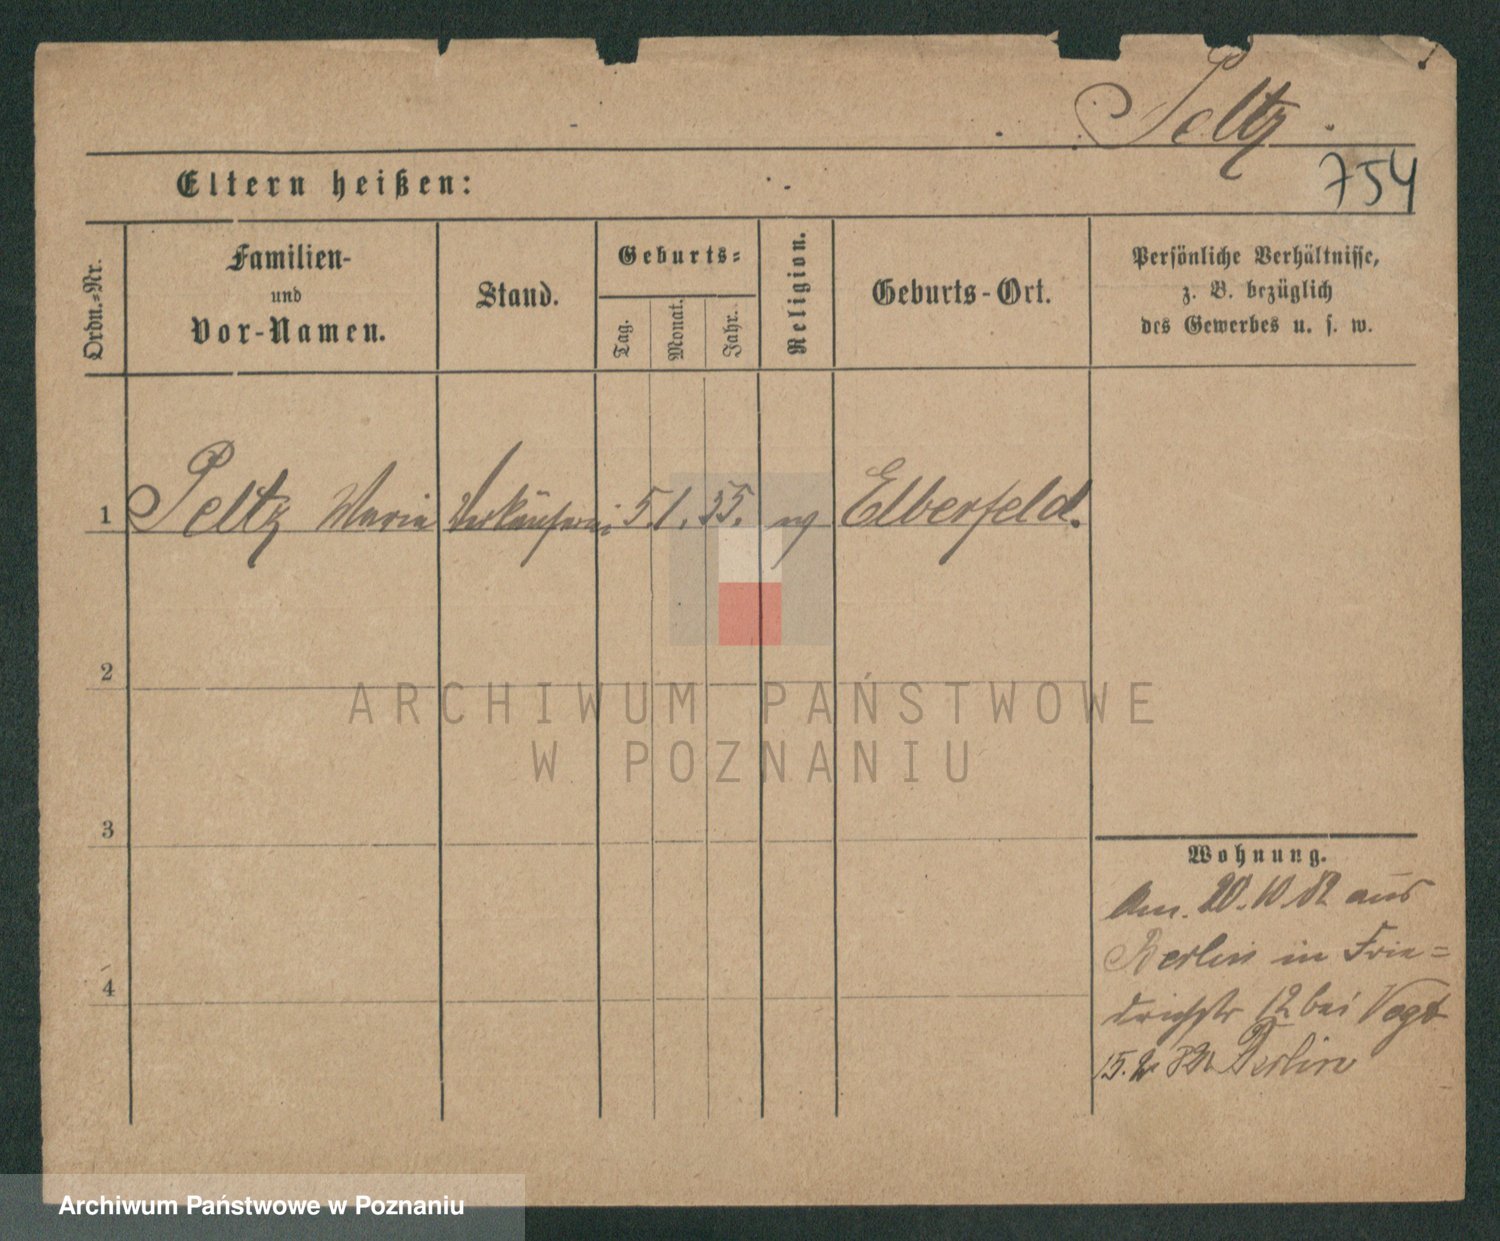 Peltz
754
Eltern heißen:
Ordn.=Nr.
Familien-
und
Vor-Namen.
Stand.
Geburts=
Tag.
Monat.
Jahr.
Religion.
Geburts-Ort.
Persönliche Verhältnisse,
z. B. bezüglich
des Gewerbes u. s. w.
1 Peltz Maria Verkäuferin 5. 1. 55. ev Elberfeld.
2
ARCHIWUM PAŃSTWOWE
W POZNANIU
3
Wohnung.
Am. 20. 10. 82 aus
Berlin in Frie=
4
drichstr 12 bei Vogt
15. Berlin
Archiwum Państwowe w Poznaniu